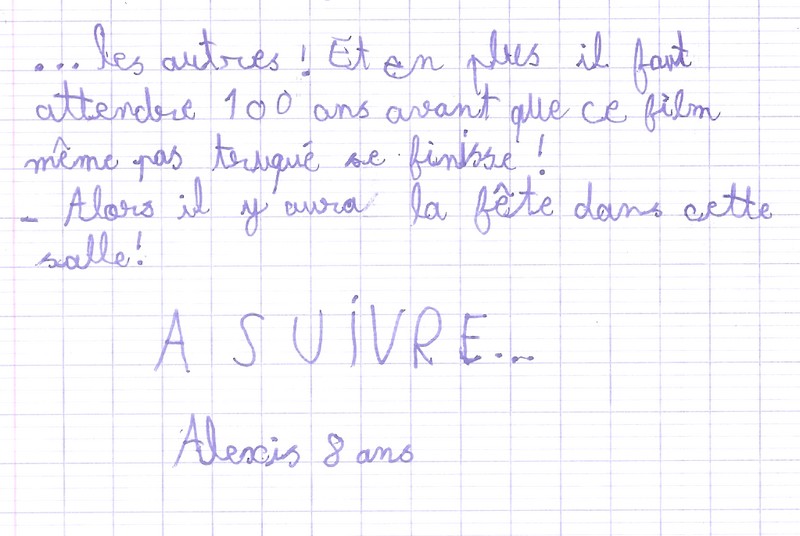 ... les autres ! Et en plus il faut
attendre 100 ans avant que ce film
même pas truqué se finisse !
- Alors il y aura la fête dans cette
salle !
A SUiVRE...
Alexis 8 ans